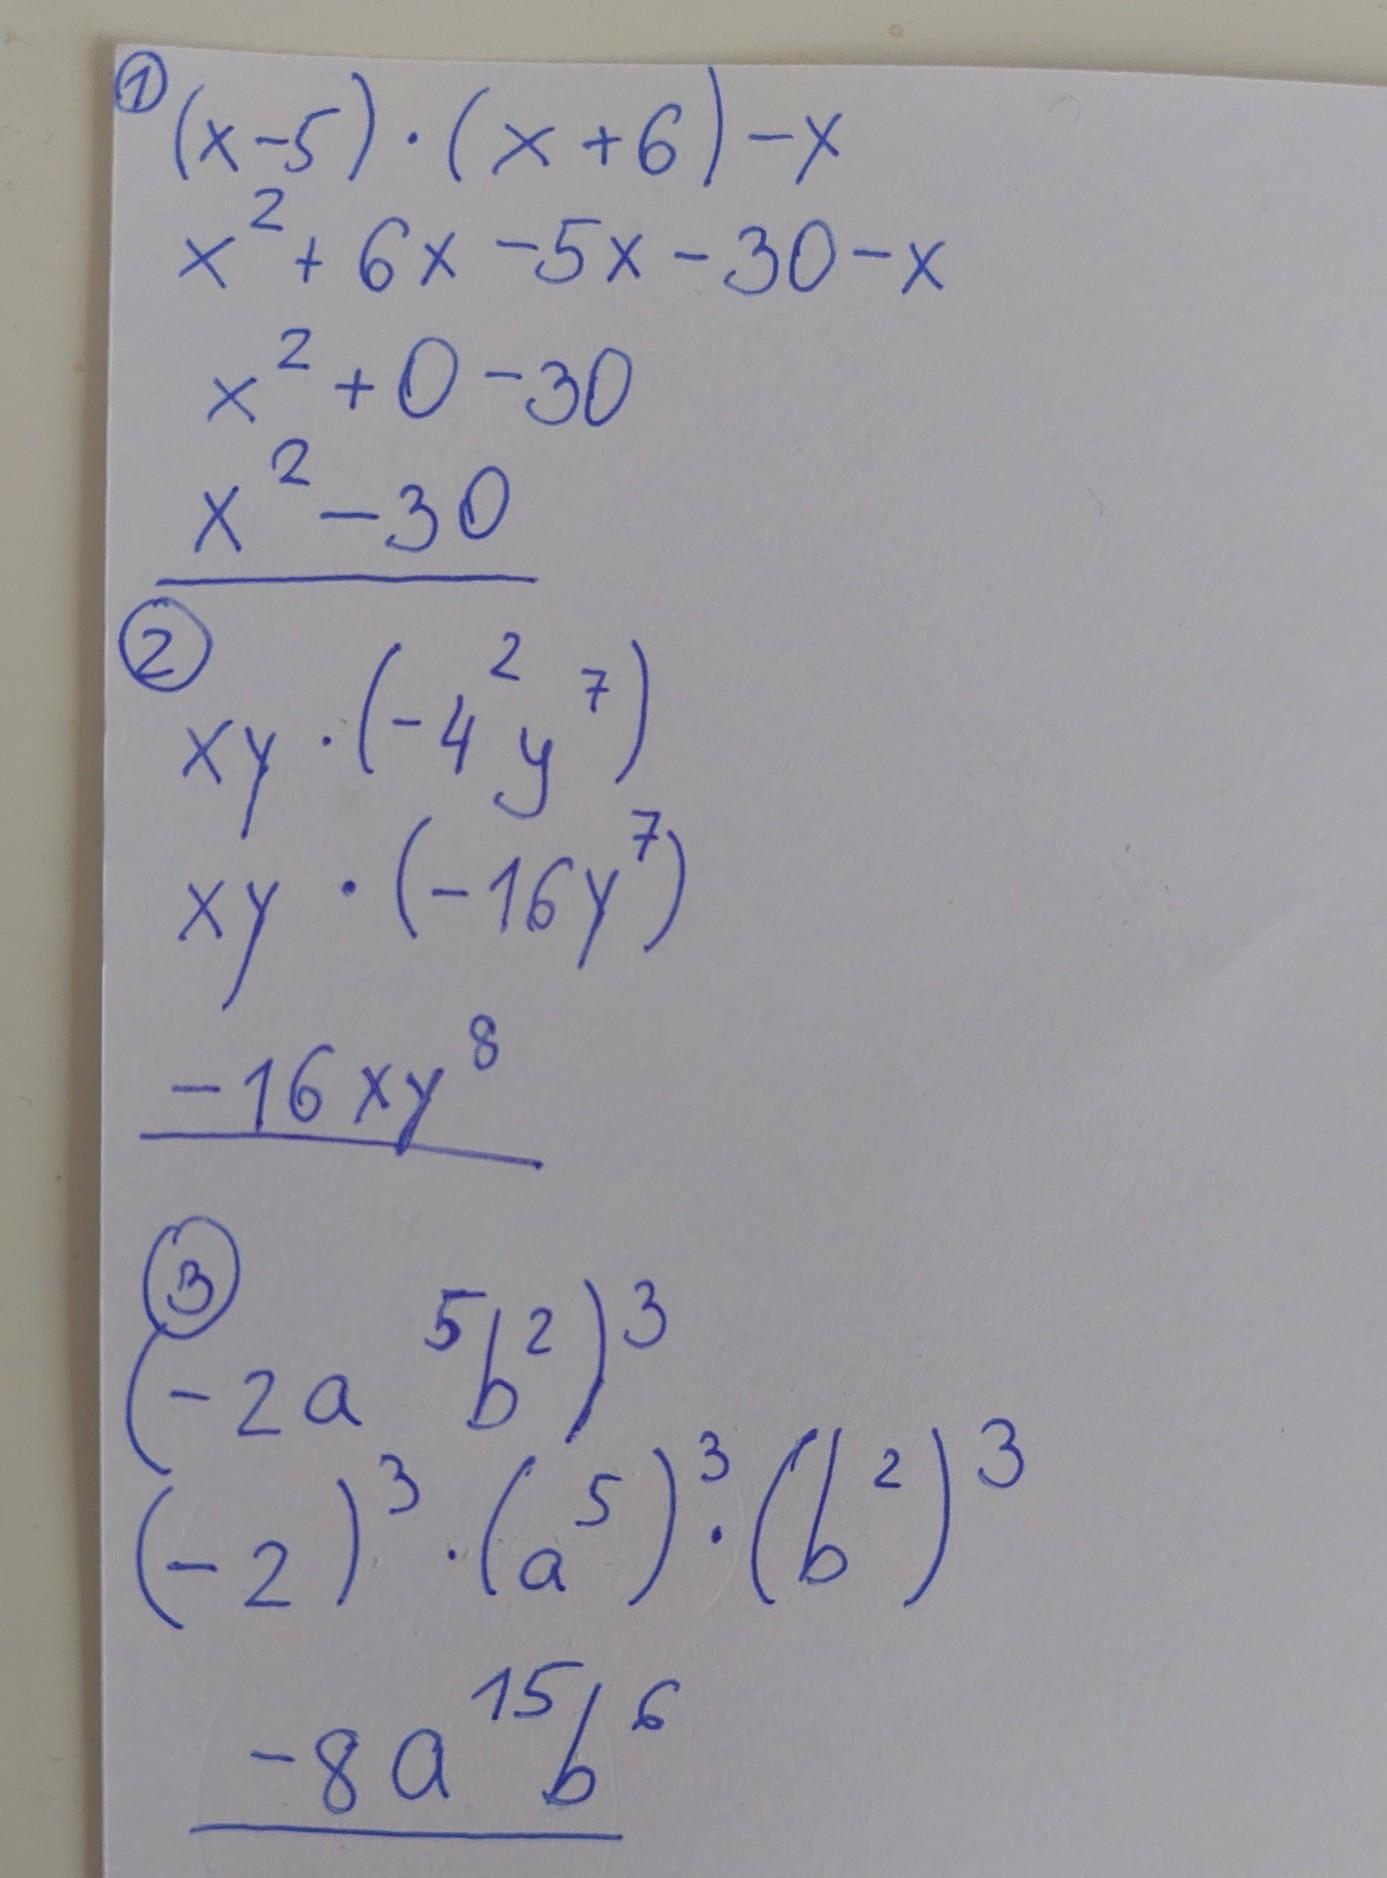 ①
(x-5)·(x+6)-x
x²+6x-5x-30-x
x²+0-30
x²-30
②
xy·(-4²y⁷)
xy·(-16y⁷)
-16xy⁸
③
(-2a⁵b²)³
(-2)³·(a⁵)³·(b²)³
-8a¹⁵b⁶